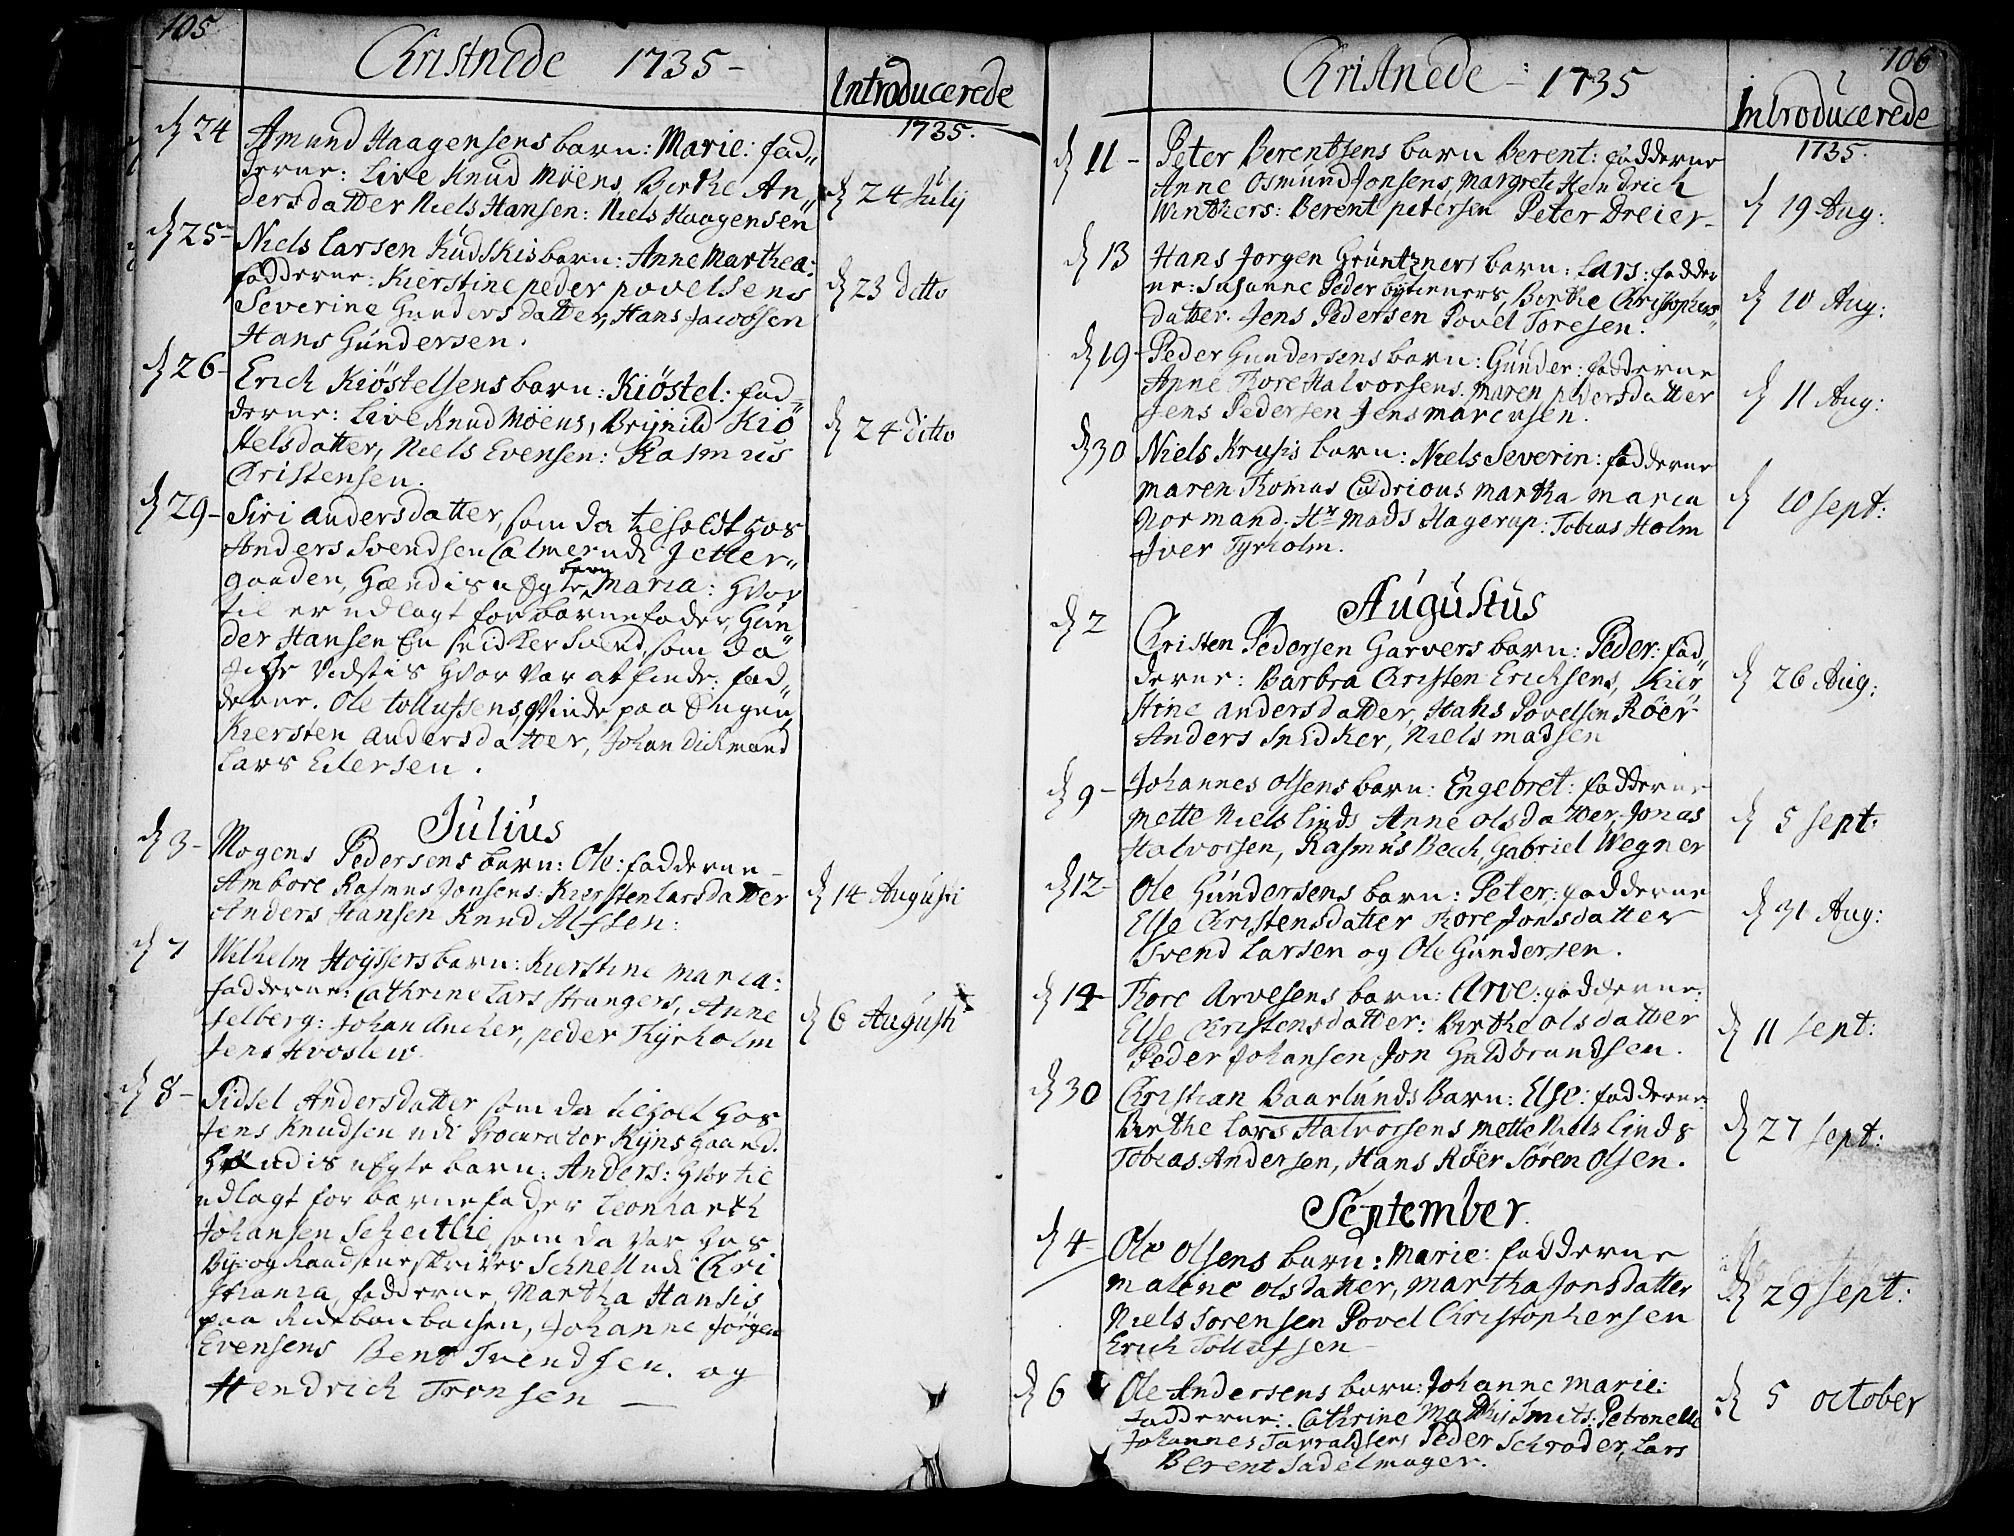 105
Christnede 1735-
Introducerede
1735.
d 24 Amund Haagensens barn: Marie: fad„
derne: Live Knud Möens, Berthe An„
dersdatter Niels Hansen: Niels Haagensen
d 24 July
d 25- Niels Larsen Kudskis barn: Anne Marthea:
fadderne: Kierstine peder povelsens
Severine Gundersdatter, Hans Jacobsen
Hans Gundersen.
d 23 ditto
d 26- Erich Kiöstelsens barn: Kiöstel: fad„
derne: Live Knud Möens, Brynild Kiö
stelsdatter, Niels Evensen: Rasmus
Christensen.
d 24 ditto
d 29- Siri Andersdatter, som da tilholdt hos
Anders Svendsen Calmer udi Jetter„
gaaden, Hændis uægte barn Maria: Hvor
til er udlagt for barnefader, Gun„
der Hansen En snidker Svend, som da
icke Vidstis Hvor Var at finde: fad„
derne. Ole tollufsens qvinde paa Engen,
Kiersten andersdatter, Johan Dickmand
Lars Eilersen.
Julius
d 3- Mogens Pedersens barn: Ole: fadderne-
Ambore Rasmus Jonsens: Kiersten Larsdatter
Anders Hansen Knud Alfsen:
d 14 Augusti
d 7 Wilhelm Höyssers barn: Kierstine Maria:
fadderne: Cathrine Lars Strangers, Anne
Selberg: Johan Ancher, peder Thyrholm
Jens Hvoslew.
d 6 Augusti
d 8- Sidsel Andersdatter som da tilholt hos
Jens Knudsen udi Procurator Ryns gaard.
Hændis uægte barn: Anders: Hvor til
udlagt for barnefader Leonharth
Johansen Scheitlie, som da Var hos
By- og Raadstueskriver Schnell udi Chri
stiania, fadderne, Martha Hansis
paa Ridebanbachen, Johanne Jörgen
Evensens Bent Svendsen. og
Hendrich Trensen —
106
Christnede - 1735
Introducerede
1735.
d 11- Peter Berentsens barn Berent: fadderne
Anne Osmund Jonsens, Margrete Hendrich
Winthers: Berent petersen Peter Dreier-
d 19 Aug:
d 13 Hans Jorgen Gruntzners barn: Lars: fadder
ne: Susanne Peder bötieners, Berthe Christophers„
datter. Jens Pedersen Povel Toresen:
d 10 Aug:
d 19- Peder Gundersens barn: Gunder: fadderne
Anne Thore Halvorsens. Maren pedersdatter
Jens Pedersen Jens marcusen.
d 11 Aug:
d 30 Niels Krusis barn: Niels Severin: fadderne
Maren Thomas Cudrious Martha Maria
Normand. Hr Mads Hagerup: Tobias Holm
Iver Tyrholm.
d 10 Sept:
Augustus
d 2 Christen Pedersen Garvers barn: Peder: fad„
derne: Barbra Christen Erichsens, Kier
stine andersdatter, Hans Povelsen Röer
Anders Snidker, Niels madsen
d 26 Aug:
d 9- Johannes Olsens barn: Engebret: fadderne
Mette Niels Linds Anne olsdatter, Jonas
Halvorsen, Rasmus Bech, Gabriel Wegner
d 5 Sept:
d 12- Ole Gundersens barn: Peter: fadderne
Else Christensdatter Thore Jonsdatter
Svend Larsen og Ole Gundersen.
d 31 Aug:
d 14- Thore Arvesens barn: Arve: fadderne:
Else Christensdatter: Berthe olsdatter
Peder Johansen, Jon Guldbrandsen.
d 11 Sept:
d 30 Christian Baarlunds Barn: Else: fadderne.
Berthe Lars Halvorsens Mette Niels Linds
Tobias Andersen, Hans Röer Sören Olsen.
d 27 Sept:
September.
d 4- Ole Olsens barn: Marie: fadderne
Malene olsdatter, Martha Jonsdatter
Niels Sorensen Povel Christophersen
Erich Tollufsen-
d 29 Sept:
d 6 Ole Andersens barn: Johanne Marie:
fadderne: Cathrine Mathis Smits: Petronelle
Johannes Tarraldsens Peder Schroder, Lars
Berent Sadelmager.
d 5 October